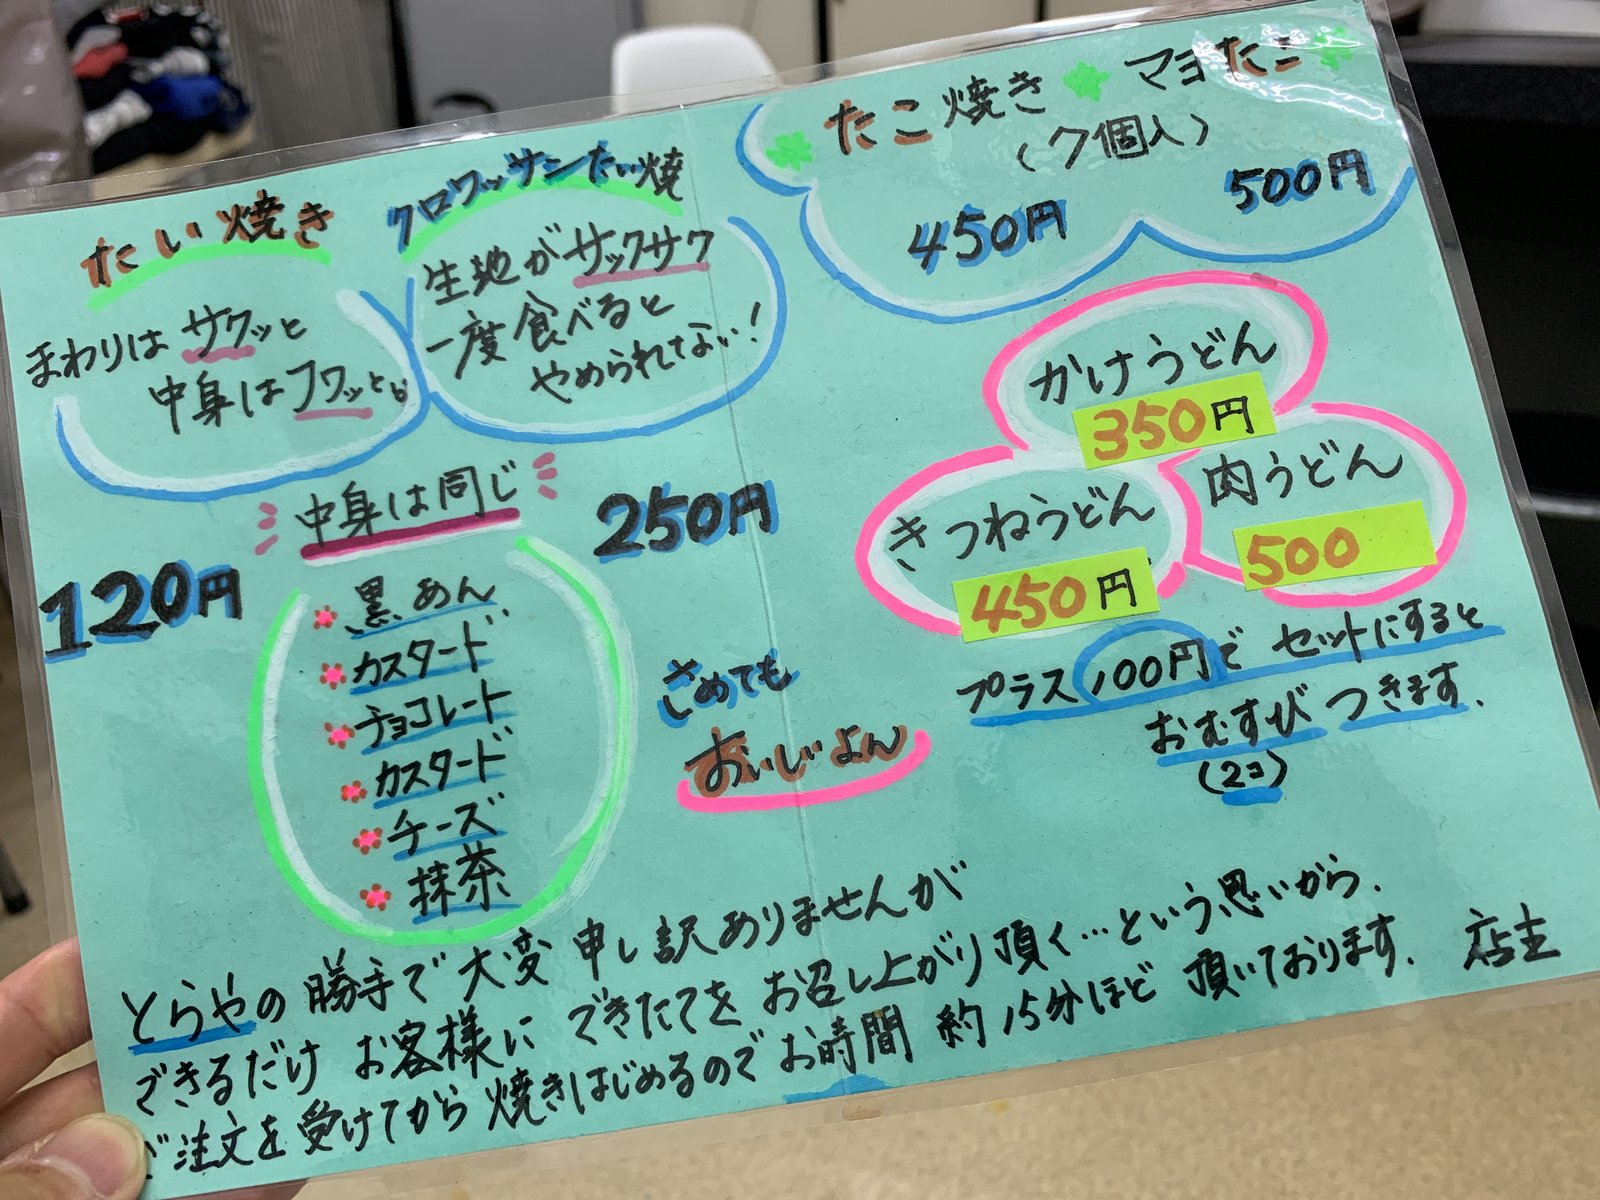 たい焼き
まわりは サクッと
中身は フワッと。
クロワッサンたい焼
生地が サックサク
一度 食べると
やめられてない!
中身は同じ
120円
250円
黒あん
カスタード
チョコレート
カスタード
チーズ
抹茶
さめても
おいじよん
たこ焼き マヨたこ
(7個入)
450円
500円
かけうどん
350円
きつねうどん
450円
肉うどん
500
プラス100円で セットにすると
おむすび つきます.
(2コ)
とらやの 勝手で 大変 申し訳ありませんが
できるだけ お客様に できたてを お召し上がり 頂く…という思いから.
ご注文を 受けてから 焼きはじめるので お時間 約15分ほど 頂いております. 店主